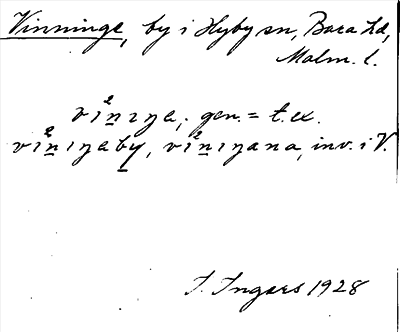 Vinninge, by i Hyby sn, Bara hd,
Malm. l.
vi²nıŋa, gen. = t. ex.
vi²nıŋaby, vi²nıŋana, inv. i V.
I. Ingers 1928